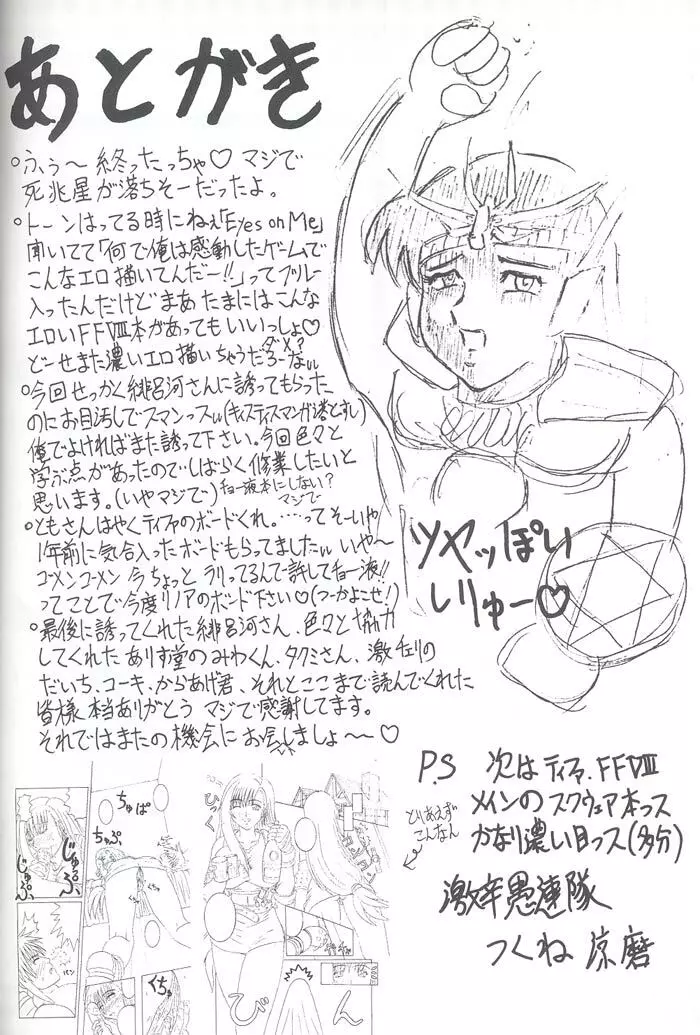 あとがき
○ふぅ〜終ったっちゃ♡マジで
死兆星が落ちそーだったよ。
○トーンはってる時にねぇ「Eyes on Me」
聞いてて「何で俺は感動したゲームで
こんなエロ描いてんだー!!」ってブルー
入ったんだけどまあたまにはこんな
エロいFFⅧ本があってもいいっしょ♡
ダメ?
どーせまた濃いエロ描いちゃうだろーなぃぃ
○今回せっかく緋呂河さんに誘ってもらった
のにお目汚しでスマンっスぃぃ(キスティスマンが落とすし)
俺でよければまた誘って下さい。今回色々と
学ぶ点があったのでしばらく修業したいと
思います。(いやマジで)
チョー液本にしない?
マジで
○ともさんはやくティファのボードくれ。……ってそーいや
1年前に気合入ったボードもらってましたぃぃいや〜
ゴメンゴメン今ちょっとラリってるんで許してチョー液!!
ってことで今度リノアのボード下さい♡(つーかよこせ!)
○最後に誘ってくれた緋呂河さん、色々と協力
してくれたありす堂のみわくん、タクミさん、激チェリの
だいち、コーキ、からあげ君、それとここまで読んでくれた
皆様本当ありがとうマジで感謝してます。
それではまたの機会にお会いしましょ〜♡
ツヤッぽい
しりゅー♡
P.S 次はティファ、FFⅧ
メインのスクウェア本っス
かなり濃い目っス(多分)
とりあえず
こんなん
激辛愚連隊
つくね涼磨
じゅるっ
じゅぷっ
ちゅぱ
ちゅぷ
ひっく
パン
くちゅ
びん